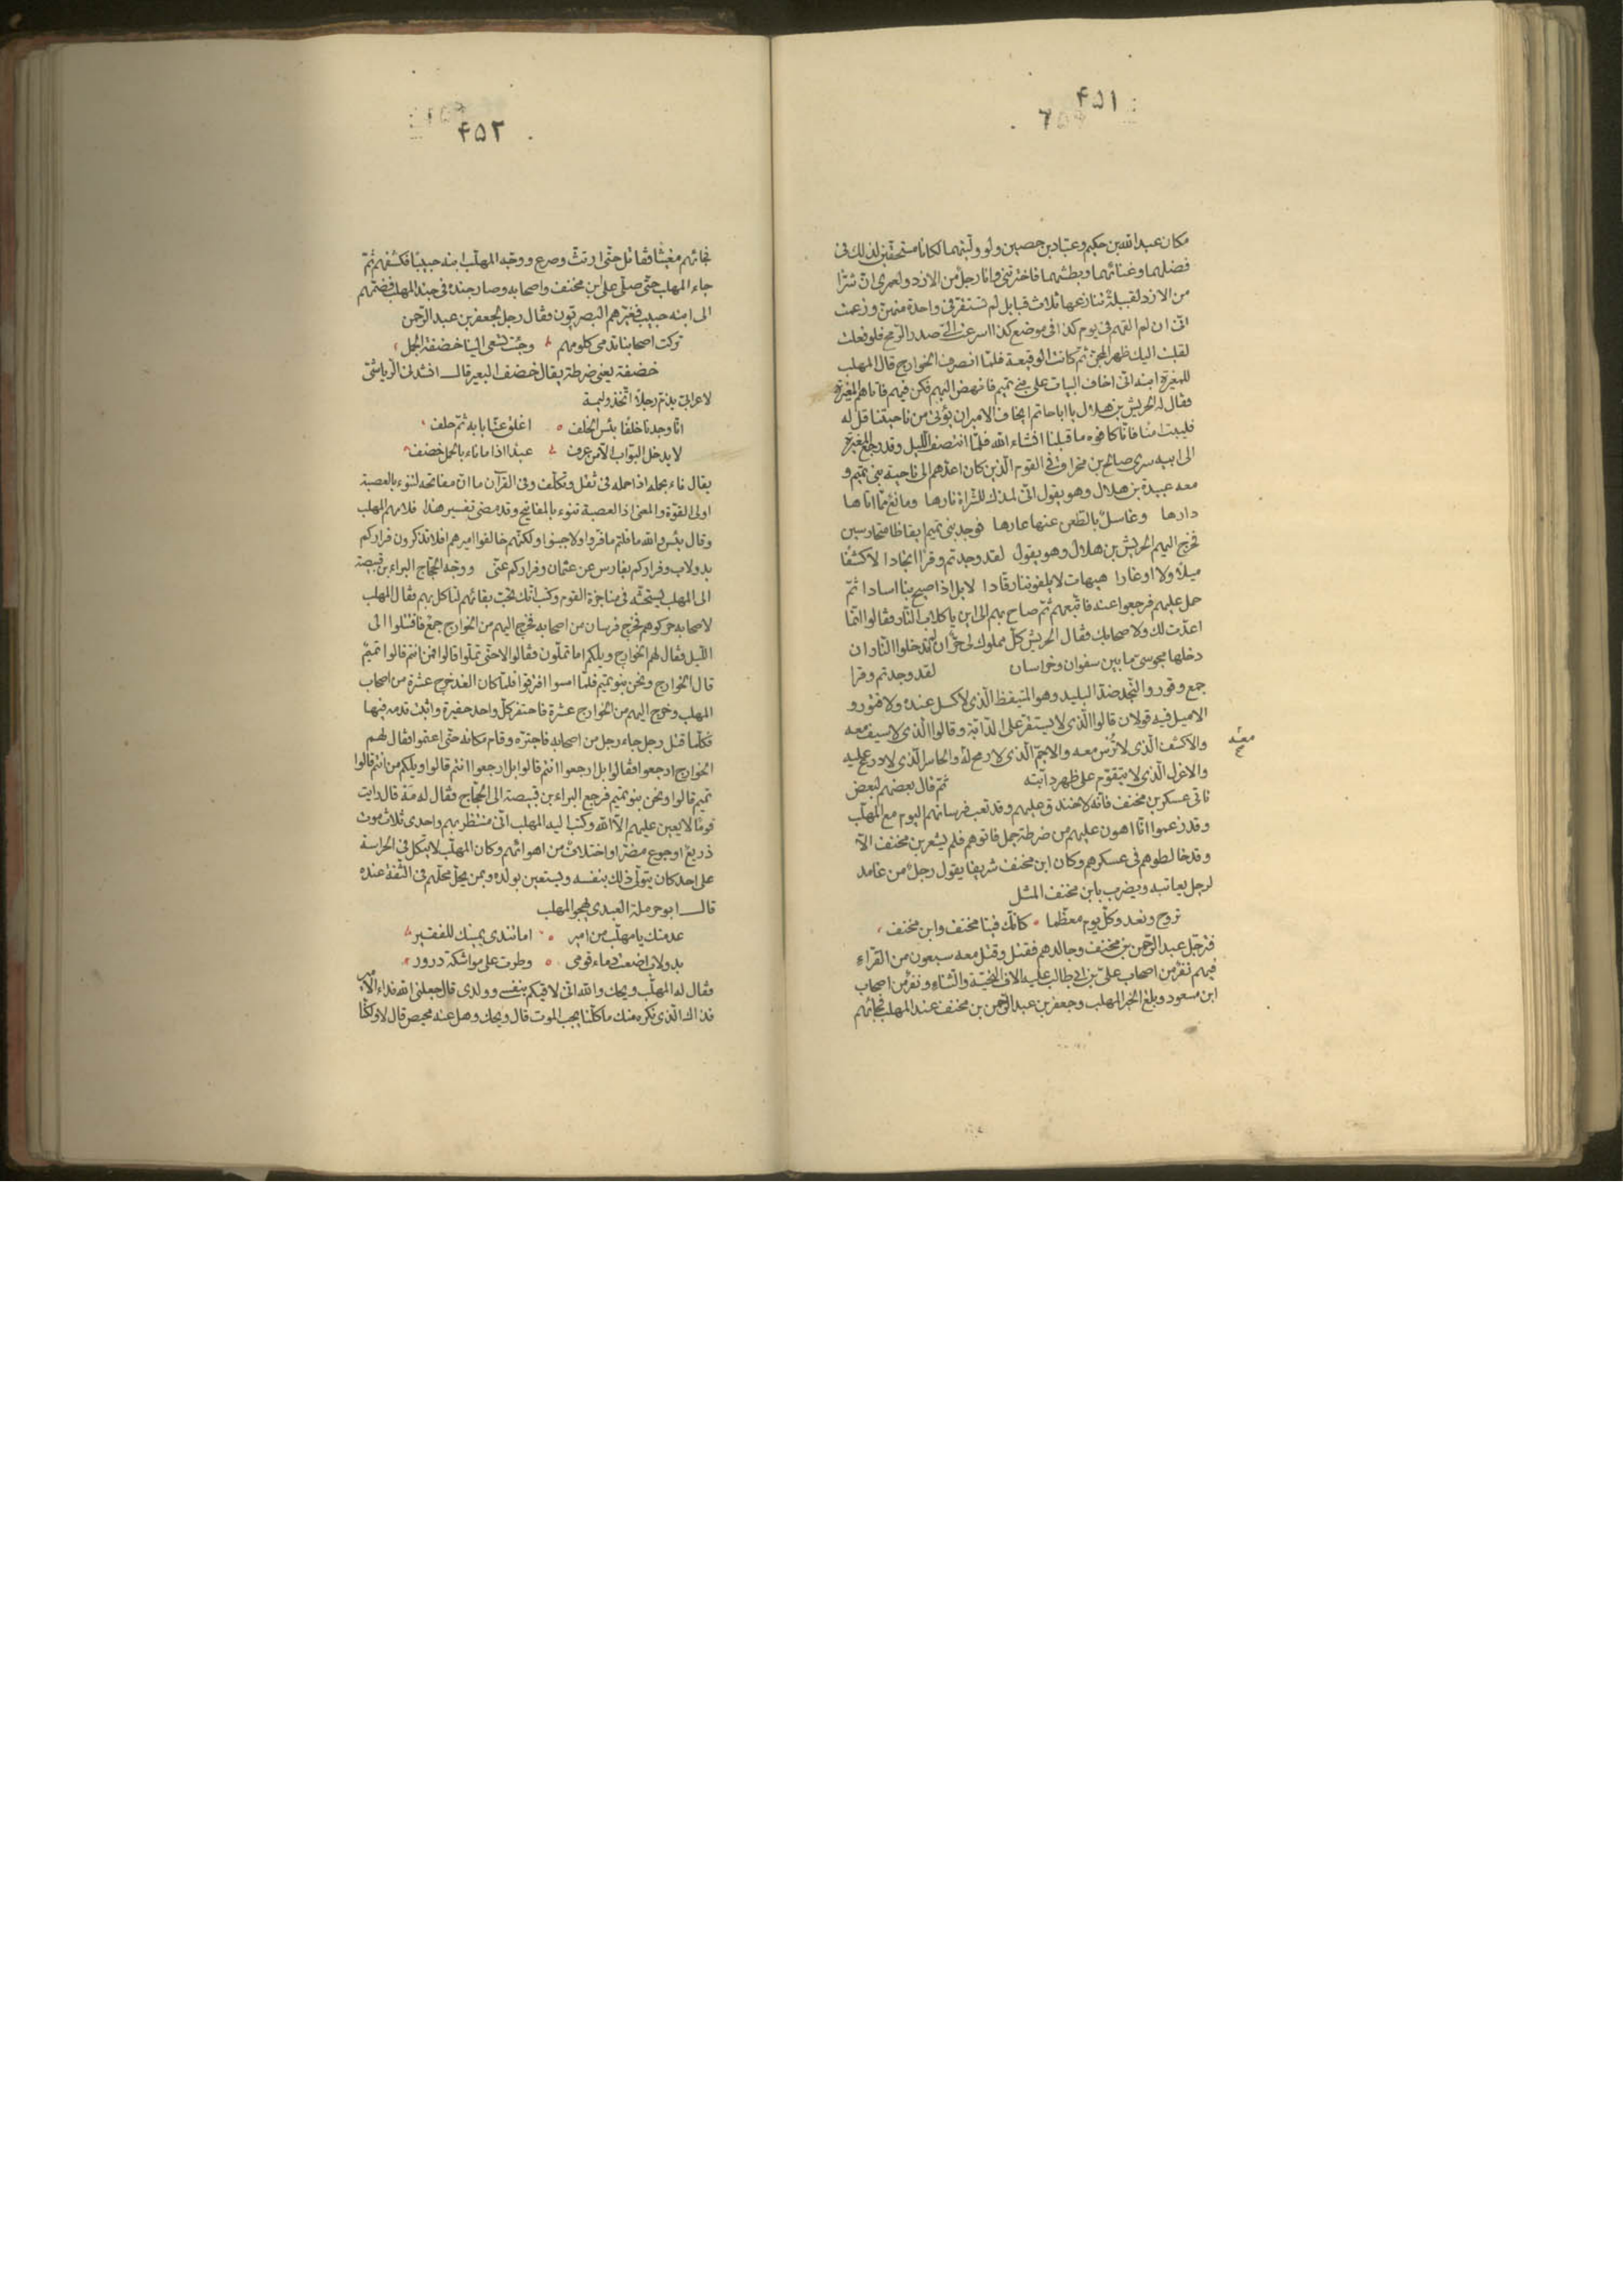 ۴۵۱
مكان عبد الله بن حكيم وعباد بن حصين ولو وليتهما لكانا مستحقين لذلك فى
فضلهما وغنائهما وبطشهما فاخترتنى وانا رجل من الازد ولعمرى ان شرّا
من الازد لقبيلة تنازعها ثلاث قبايل لم تستقر فى واحدة منهن وزعمت
انى ان لم القهم فى يوم كذا فى موضع كذا اسرعت الىّ صدر الرمح فلو فعلت
لقلبت اليك ظهر المجنّ ثم كانت الوقيعة فلمّا انصرف الخوارج قال المهلب
للمغيرة ابنه انى اخاف البيات على بنى تميم فانهض اليهم فكن فيهم فاتاهم المغيرة
فقال له الحريش بن هلال يا ابا حاتم ايخاف الامير ان يؤتى من ناحيتنا قل له
فليبت امنا فانّا كافوه ما قبلنا انشاء الله فلمّا انتصف الليل وقد رجع المغيرة
الى ابيه سرى صالح بن مخراق فى القوم الّذين كان اعدّهم الى ناحية بنى تميم و
معه عبيدة بن هلال وهو يقول انى لمذك للشراة نارها ومانع ممّا اتاها
دارها وغاسل بالطّعن عنها عارها فوجد بنى تميم ايقاظا متحارسين
فخرج اليهم الحريش بن هلال وهو يقول لقد وجدتم وقرا انجادا لا كشفا
ميلا ولا اوغارا هيهات لا يلفوننا رقادا لا بل اذا صيح بنا اسادا ثمّ
حمل عليهم فرجعوا عنه فاتبعهم ثمّ صاح بهم الى اين يا كلاب النّار فقالوا انّما
اعدّت لك ولاصحابك فقال الحريش كلّ مملوك لى حرّ ان لم تدخلوا النّار ان
دخلها مجوسى فيما بين سفوان وخراسان لقد وجدتم وقرا
جمع وقور والنّجد ضدّ البليد وهو المتيقظ الّذى لا كسل عنده ولا فتور و
الاميل فيه قولان قالوا الّذى لا يستقرّ على الدّابّة وقالوا الّذى لا سيف معه
معه
والاكشف الّذى لا ترس معه والاجمّ الّذى لا رمح له والحاسر الّذى لا درع عليه
والاعزل الّذى لا يتقوّم على ظهر دابّته ثمّ قال بعضهم لبعض
ناتى عسكر بن مخنف فانّه لا خندق عليهم وقد تعب فرسانهم اليوم مع المهلّب
وقد زعموا انّا اهون عليهم من ضرطة جمل فاتوهم فلم يشعر بن مخنف الّا
وقد خالطوهم فى عسكرهم وكان ابن مخنف شريفا يقول رجل من غامد
لرجل يعاتبه ويضرب بابن مخنف المثل
تروح وتغدو كلّ يوم معظّما كانّك فينا مخنف وابن مخنف
فترجّل عبد الرّحمن بن مخنف وجالدهم فقتل وقتل معه سبعون من القرّاء
فيهم نفر من اصحاب علىّ بن ابى طالب عليه الاف التّحيّة والثّناء ونفر من اصحاب
ابن مسعود وبلغ الخبر المهلب وجعفر بن عبد الرّحمن بن مخنف عند المهلب فجائهم
۴۵۲
فجائهم مغيثا فقاتل حتّى ارتث وصرع ووجّه المهلّب ابنه حبيبا فكشفهم ثمّ
جاء المهلب حتّى صلّى على ابن مخنف واصحابه وصار جنده فى جند المهلب فضمّهم
الى ابنه حبيب فعيّرهم البصريّون فقال رجل لجعفر بن عبد الرّحمن
تركت اصحابنا تدمى كلومهم وجئت تسعى الينا خضفة الجمل
خضفة يعنى ضرطة يقال خضف البعير قال انشدنى الرّياشىّ
لاعرابىّ يذمّ رجلا اتّخذ وليمة
انّا وجدنا خلفا بئس الخلف اغلق عنّا بابه ثمّ حلف
لا يدخل البوّاب الّا من عرف عبدا اذا ما ناء بالحمل خضف
يقال ناء بحمله اذا حمله فى ثقل وتكلّف وفى القرآن ما انّ مفاتحه لتنوء بالعصبة
اولى القوّة والمعنى اذا العصبة تنوء بالمفاتيح وقد مضى تفسير هذا فلامهم المهلب
وقال بئس والله ما قلتم ما فرّوا ولا جبنوا ولكنّهم خالفوا اميرهم افلا تذكرون فراركم
بدولاب وفراركم بفارس عن عثمان وفراركم عنّى ووجّه الحجّاج البراء بن قبيصة
الى المهلب يستحثّه فى مناجزة القوم وكتب انّك تحبّ بقائهم لتاكل بهم فقال المهلب
لاصحابه حركوهم فخرج فرسان من اصحابه فخرج اليهم من الخوارج جمع فاقتتلوا الى
اللّيل فقال لهم الخوارج ويلكم اما تملّون فقالوا لا حتّى تملّوا قالوا فمن انتم قالوا تميم
قال الخوارج ونحن بنو تميم فلمّا امسوا افترقوا فلمّا كان الغد خرج عشرة من اصحاب
المهلب وخرج اليهم من الخوارج عشرة فاحتفر كلّ واحد حفيرة واثبت قدمه فيها
فكلّما قتل رجل جاء رجل من اصحابه فاجترّه وقام مكانه حتّى اعتموا فقال لهم
الخوارج ارجعوا فقالوا بل ارجعوا انتم قالوا بل ارجعوا انتم قالوا ويلكم من انتم قالوا
تميم قالوا ونحن بنو تميم فرجع البراء بن قبيصة الى الحجّاج فقال له مه قال رايت
قوما لا يعين عليهم الّا الله وكتب اليه المهلب انّى منتظر بهم واحدى ثلاث موت
ذريع او جوع مضرّ او اختلاف من اهوائهم وكان المهلّب لا يتكل فى الحراسة
على احد كان يتولّى ذلك بنفسه ويستعين بولده وبمن يحلّ محلّهم فى الثّقة عنده
قال ابو حرملة العبدى يهجو المهلب
عدمتك يا مهلّب من امير اما تندى يمينك للفقير
بدولاب اضعت دماء قومى وطرت على مواشكة درور
فقال له المهلّب ويحك والله انّى لاقيكم بنفسى وولدى قال جعلنى الله فداء الامير
فذاك الّذى نكره منك ما كلّنا يحب الموت قال ويحك وهل عنه محيص قال لا ولكنّا